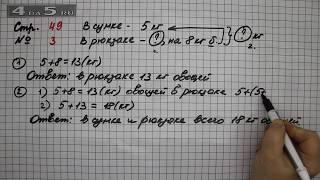 4DA5.RU
Стр. 49 В сумке - 5 кг
№ 3 В рюкзаке - ?, на 8 кг б. ? кг
1. 2.
① 5+8=13(кг)
Ответ: в рюкзаке 13 кг овощей
② 1) 5+8=13(кг) овощей в рюкзаке 5+(5
2) 5+13=18(кг)
Ответ: в сумке и рюкзаке всего 18 кг овощей